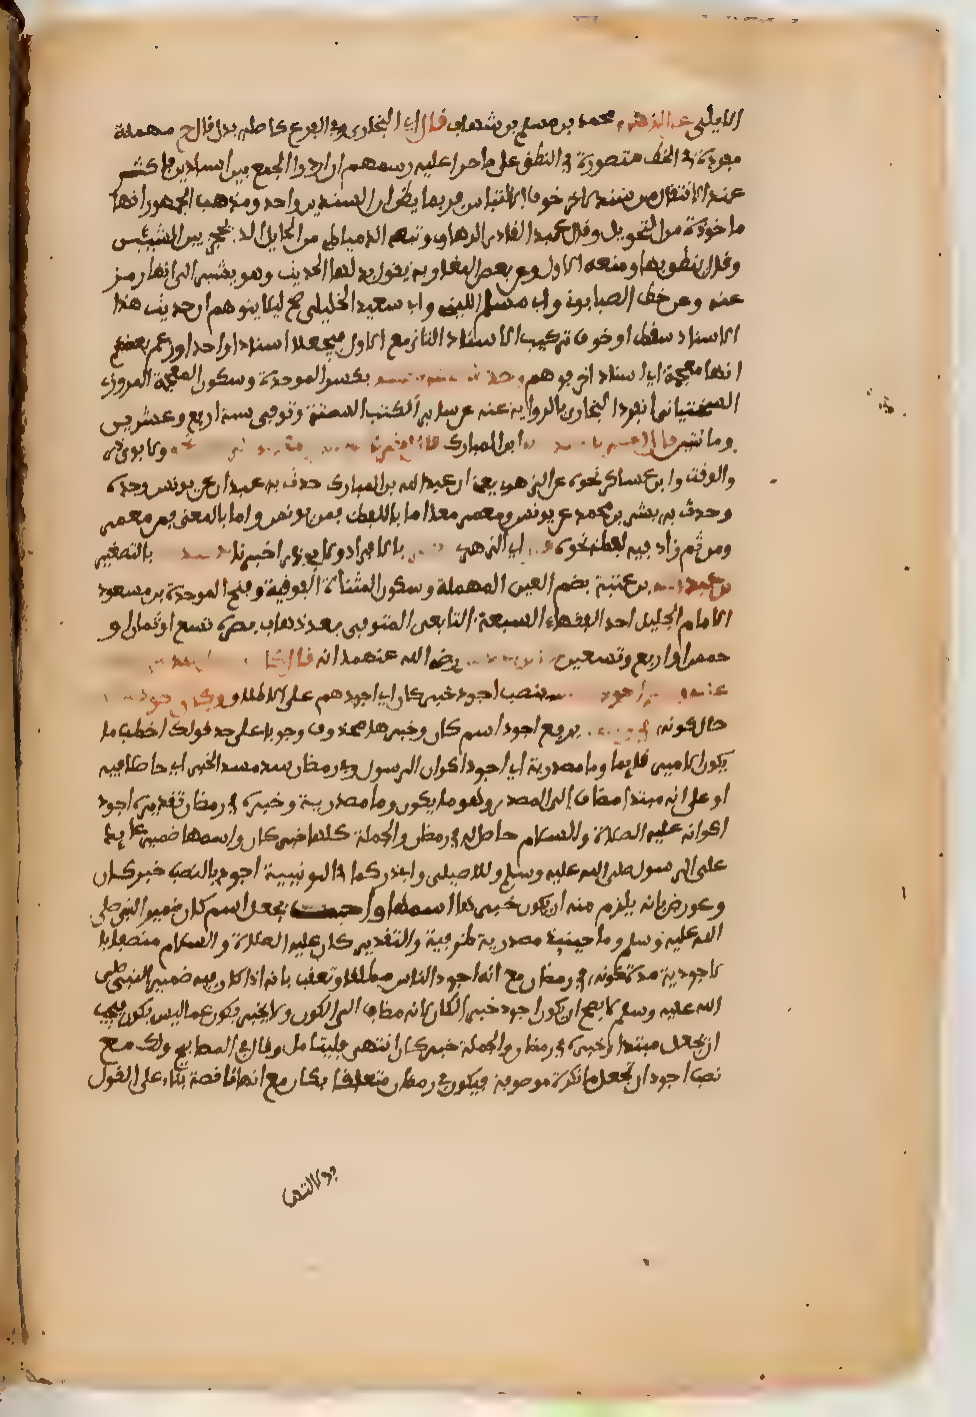 الايلي عن الزهري محمد بن مسلم بن شهاب قال اي البخاري وفي الفرع كاصله بدل قال ح مهملة
مفردة في الخط مقصورة في النطق على ما جرا عليه رسمهم اذا ارادوا الجمع بين اسنادين فاكثر
عند الانتقال من سند لاخر خوف الالتباس فربما يظن ان السندين واحد ومذهب الجمهور انها
ماخوذة من التحويل وقال عبد القادر الرهاوي وتبعه الدمياطي من الحايل الذي يحجز بين الشيئين
وقال ينطق بها ومنعه الاول وعن بعض المغاربة يقول بدلها الحديث وهو يشير الى انها رمز
عنه وعن خط الصابوني وابي مسلم الليثي وابي سعيد الخليلي صح ليلا يتوهم ان حديث هذا
الاسناد سقط او خوف تركيب الاسناد الثاني مع الاول فيجعلا اسنادا واحدا وزعم بعضهم
انها معجمة اي اسناد اخر بكسر الموحدة وسكون المعجمة المروزي
السختياني انفرد البخاري بالرواية عنه عن ساير الكتب الستة وتوفي سنة اربع وعشرين
وماتتين قال ابن المبارك قال اخبرنا ولابوي ذر
والوقت وابن عساكر نحوه عن الزهري يعني ان عبد الله بن المبارك حدث به عبدان عن يونس وحده
وحدث به بشر بن محمد عن يونس ومعمر معا اما باللفظ فعن يونس واما بالمعنى فعن معمر
ومن ثم زاد فيه لفظ نحوه اي الزهري بالافراد ولابي ذر اخبرنا بالتصغير
بن عبد الله بن عتبة بضم العين المهملة وسكون المثناة الفوقية وفتح الموحدة بن مسعود
الامام الجليل احد الفقهاء السبعة التابعي المتوفى بعد ذهاب بصره سنة تسع او ثمان او
خمس او اربع وتسعين رضي الله عنهما انه قال كان
اجود بنصب اجود خبر كان اي اجودهم على الاطلاق وكان اجود
حال كونه في رمضان برفع اجود اسم كان وخبرها محذوف وجوبا على حد قولك اخطب ما
يكون الامير قايما وما مصدرية اي اجود اكوان الرسول وفي رمضان سد مسد الخبر اي حاصلا فيه
او على انه مبتدا مضاف الى المصدر وهو ما يكون وما مصدرية وخبره في رمضان تقديره اجود
اكوانه عليه الصلاة والسلام حاصل له في رمضان والجملة كلها خبر كان واسمها ضمير عايد
على الرسول صلى الله عليه وسلم وللاصيلي وابي ذر كما في اليونينية اجود بالنصب خبر كان
وعورض بانه يلزم منه ان يكون خبرها اسمها واجيب بجعل اسم كان ضمير النبي صلى
الله عليه وسلم وما حينيذ مصدرية ظرفية والتقدير كان عليه الصلاة والسلام متصفا با
لاجودية مدة كونه في رمضان مع انه اجود الناس مطلقا وتعقب بانه اذا كان فيه ضمير النبي صلى
الله عليه وسلم لا يصح ان يكون اجود خبرا لكان لانه مضاف الى الكون ولا يخبر بكون عما ليس بكون فيجب
ان يجعل مبتدا وخبره في رمضان والجملة خبر كان انتهى فليتامل وقال في المصابيح ولك مع
نصب اجود ان تجعل ما نكرة موصوفة فيكون في رمضان متعلقا بكان مع انها ناقصة بناء على القول